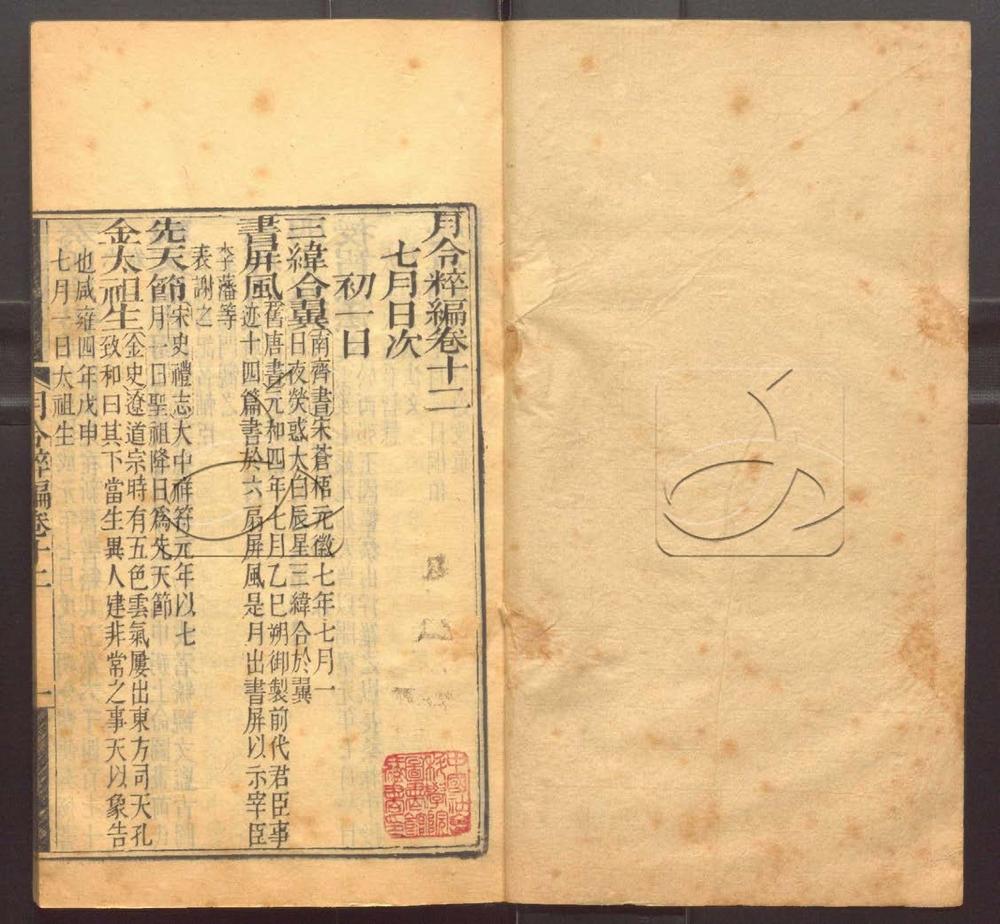 月令粹編卷十二
七月日次
初一日
三緯合翼（南齊書）宋蒼梧元徽七年七月一
日夜熒惑太白辰星三緯合於翼
書屏風（舊唐書）元和四年七月乙巳朔御製前代君臣事
迹十四篇書於六扇屏風是月出書屏以示宰臣
李藩等
表謝之
先天節（宋史禮志）大中祥符元年以七
月一日聖祖降日為先天節
金太祖生（金史）遼道宗時有五色雲氣屢出東方司天孔
致和曰其下當生異人建非常之事天以象告
也咸雍四年戊申
七月一日太祖生
月令粹編卷十二
一